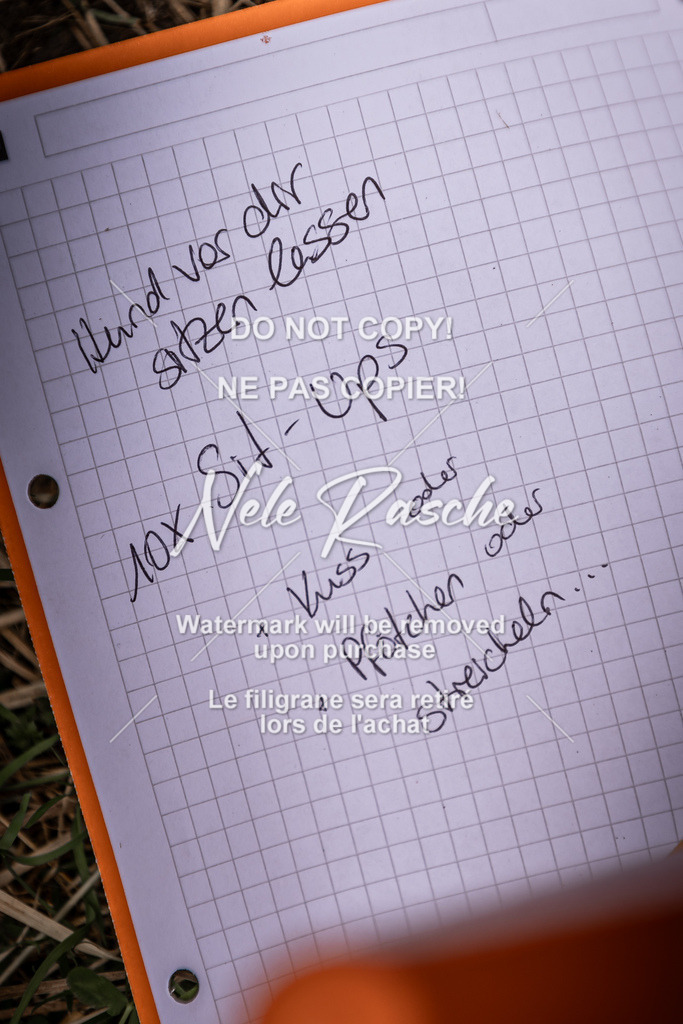 Hund vor dir
sitzen lassen
DO NOT COPY!
NE PAS COPIER!
10x Sit-Ups
Nele Rasche
• Kuss oder
Watermark will be removed
upon purchase
• Pfötchen oder
Le filigrane sera retiré
lors de l'achat
streicheln...